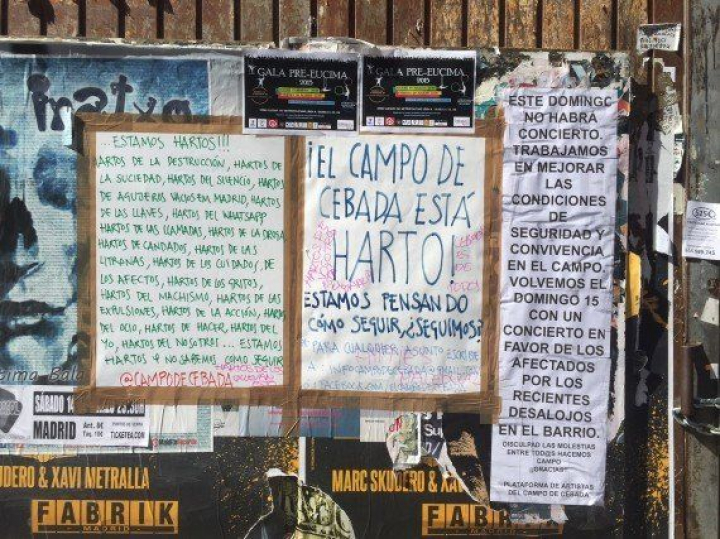 GALA PRE-EUCIMA
2015
GALA PRE-EUCIMA
2015
...ESTAMOS HARTOS!!!
ARTOS DE LA DESTRUCCIÓN, HARTOS DE
LA SUCIEDAD, HARTOS DEL SILENCIO, HARTOS
DE AGUJEROS VACÍOS EN MADRID, HARTOS
DE LAS LLAVES, HARTOS DEL WHATSAPP
HARTOS DE LAS LLAMADAS, HARTOS DE LA DROGA
HARTOS DE CANDADOS, HARTOS DE LAS
LITRONAS, HARTOS DE LOS CUIDADOS, DE
LOS AFECTOS, HARTOS DE LOS GRITOS,
HARTOS DEL MACHISMO, HARTOS DE LAS
EXPULSIONES, HARTOS DE LA ACCIÓN, HARTOS
DEL OCIO, HARTOS DE HACER, HARTOS DEL
YO, HARTOS DEL NOSOTROS... ESTAMOS
HARTOS Y NO SABEMOS COMO SEGUIR
@CAMPODECEBADA
¡EL CAMPO DE
CEBADA ESTÁ
HARTO!
ESTAMOS PENSANDO
CÓMO SEGUIR, ¿SEGUIMOS?
PARA CUALQUIER ASUNTO ESCRIBE
ESTE DOMINGO
NO HABRÁ
CONCIERTO.
TRABAJAMOS
EN MEJORAR
LAS
CONDICIONES
DE
SEGURIDAD Y
CONVIVENCIA
EN EL CAMPO.
VOLVEMOS EL
DOMINGO 15
CON UN
CONCIERTO EN
FAVOR DE LOS
AFECTADOS
POR LOS
RECIENTES
DESALOJOS
EN EL BARRIO.
DISCULPAD LAS MOLESTIAS
ENTRE TOD@S HACEMOS
CAMPO
¡¡GRACIAS!!
PLATAFORMA DE ARTISTAS
DEL CAMPO DE CEBADA
SÁBADO
MADRID
Ant. 6€
Taq. 10€
TICKETEA.COM
UDERO & XAVI METRALLA
FABRIK
MADRID
MARC SKUDERO & XA
FABRIK